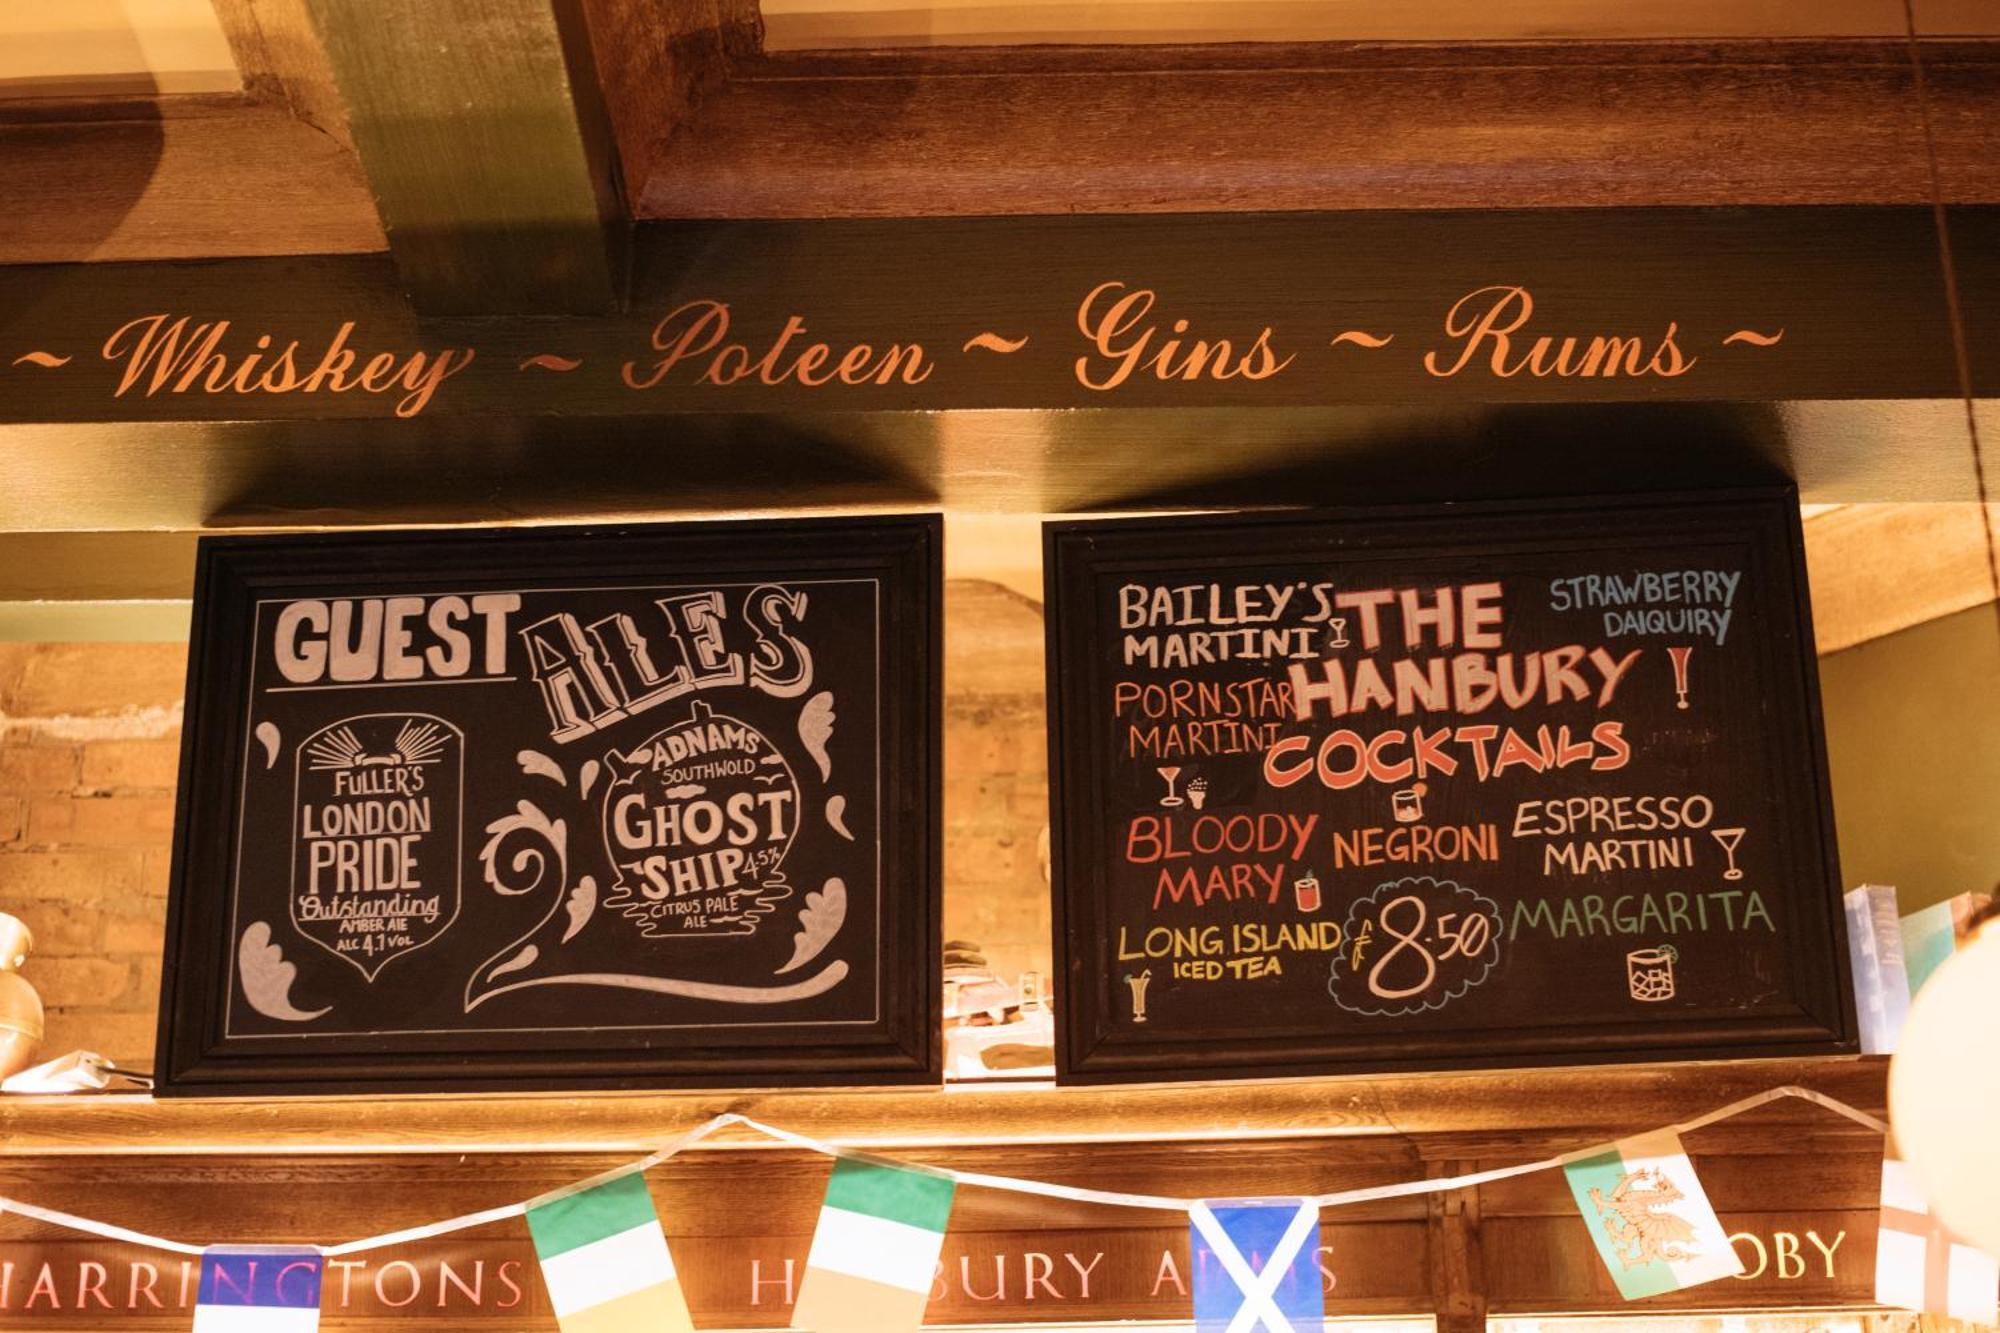 ~ Whiskey ~ Poteen ~ Gins ~ Rums ~
GUEST ALES
FULLER'S
LONDON
PRIDE
Outstanding
AMBER ALE
ALC 4.1 VOL
ADNAMS
SOUTHWOLD
GHOST
SHIP 4.5%
CITRUS PALE
ALE
THE
HANBURY
COCKTAILS
BAILEY'S
MARTINI
PORNSTAR
MARTINI
BLOODY
MARY
LONG ISLAND
ICED TEA
NEGRONI
£8.50
STRAWBERRY
DAIQUIRY
ESPRESSO
MARTINI
MARGARITA
HARRINGTONS
H BURY ARMS
OBY